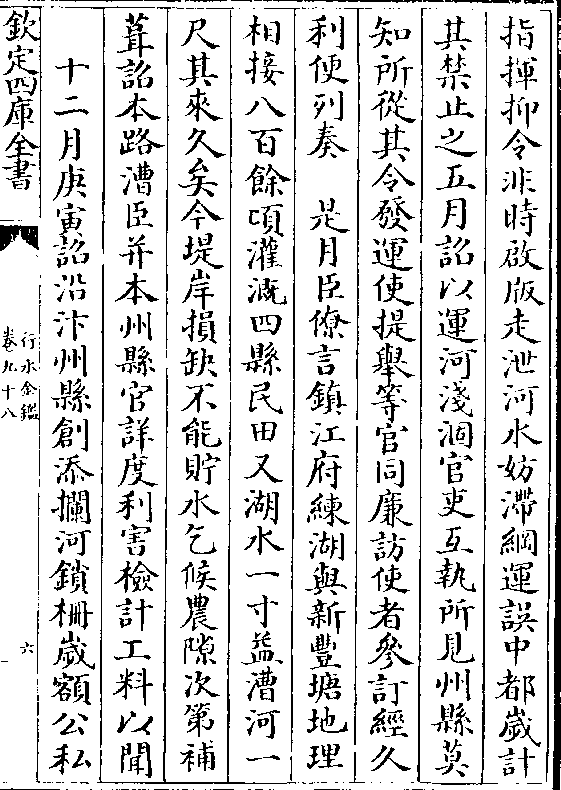 指揮抑令非時啟版走泄河水妨滯綱運誤中都嵗計
其禁止之五月詔以運河淺涸官吏互執所見州縣莫
知所從其令發運使提舉等官同廉訪使者參訂經久
利便列奏　是月臣僚言鎮江府練湖與新豐塘地理
相接八百餘頃灌溉四縣民田又湖水一寸益漕河一
尺其來久矣今堤岸損缺不能貯水乞候農隙次第補
葺詔本路漕臣并本州縣官詳度利害檢計工料以聞
十二月庚寅詔沿汴州縣創添攔河鎖柵嵗額公私
欽定四庫全書
行水金鑑
卷九十八
六